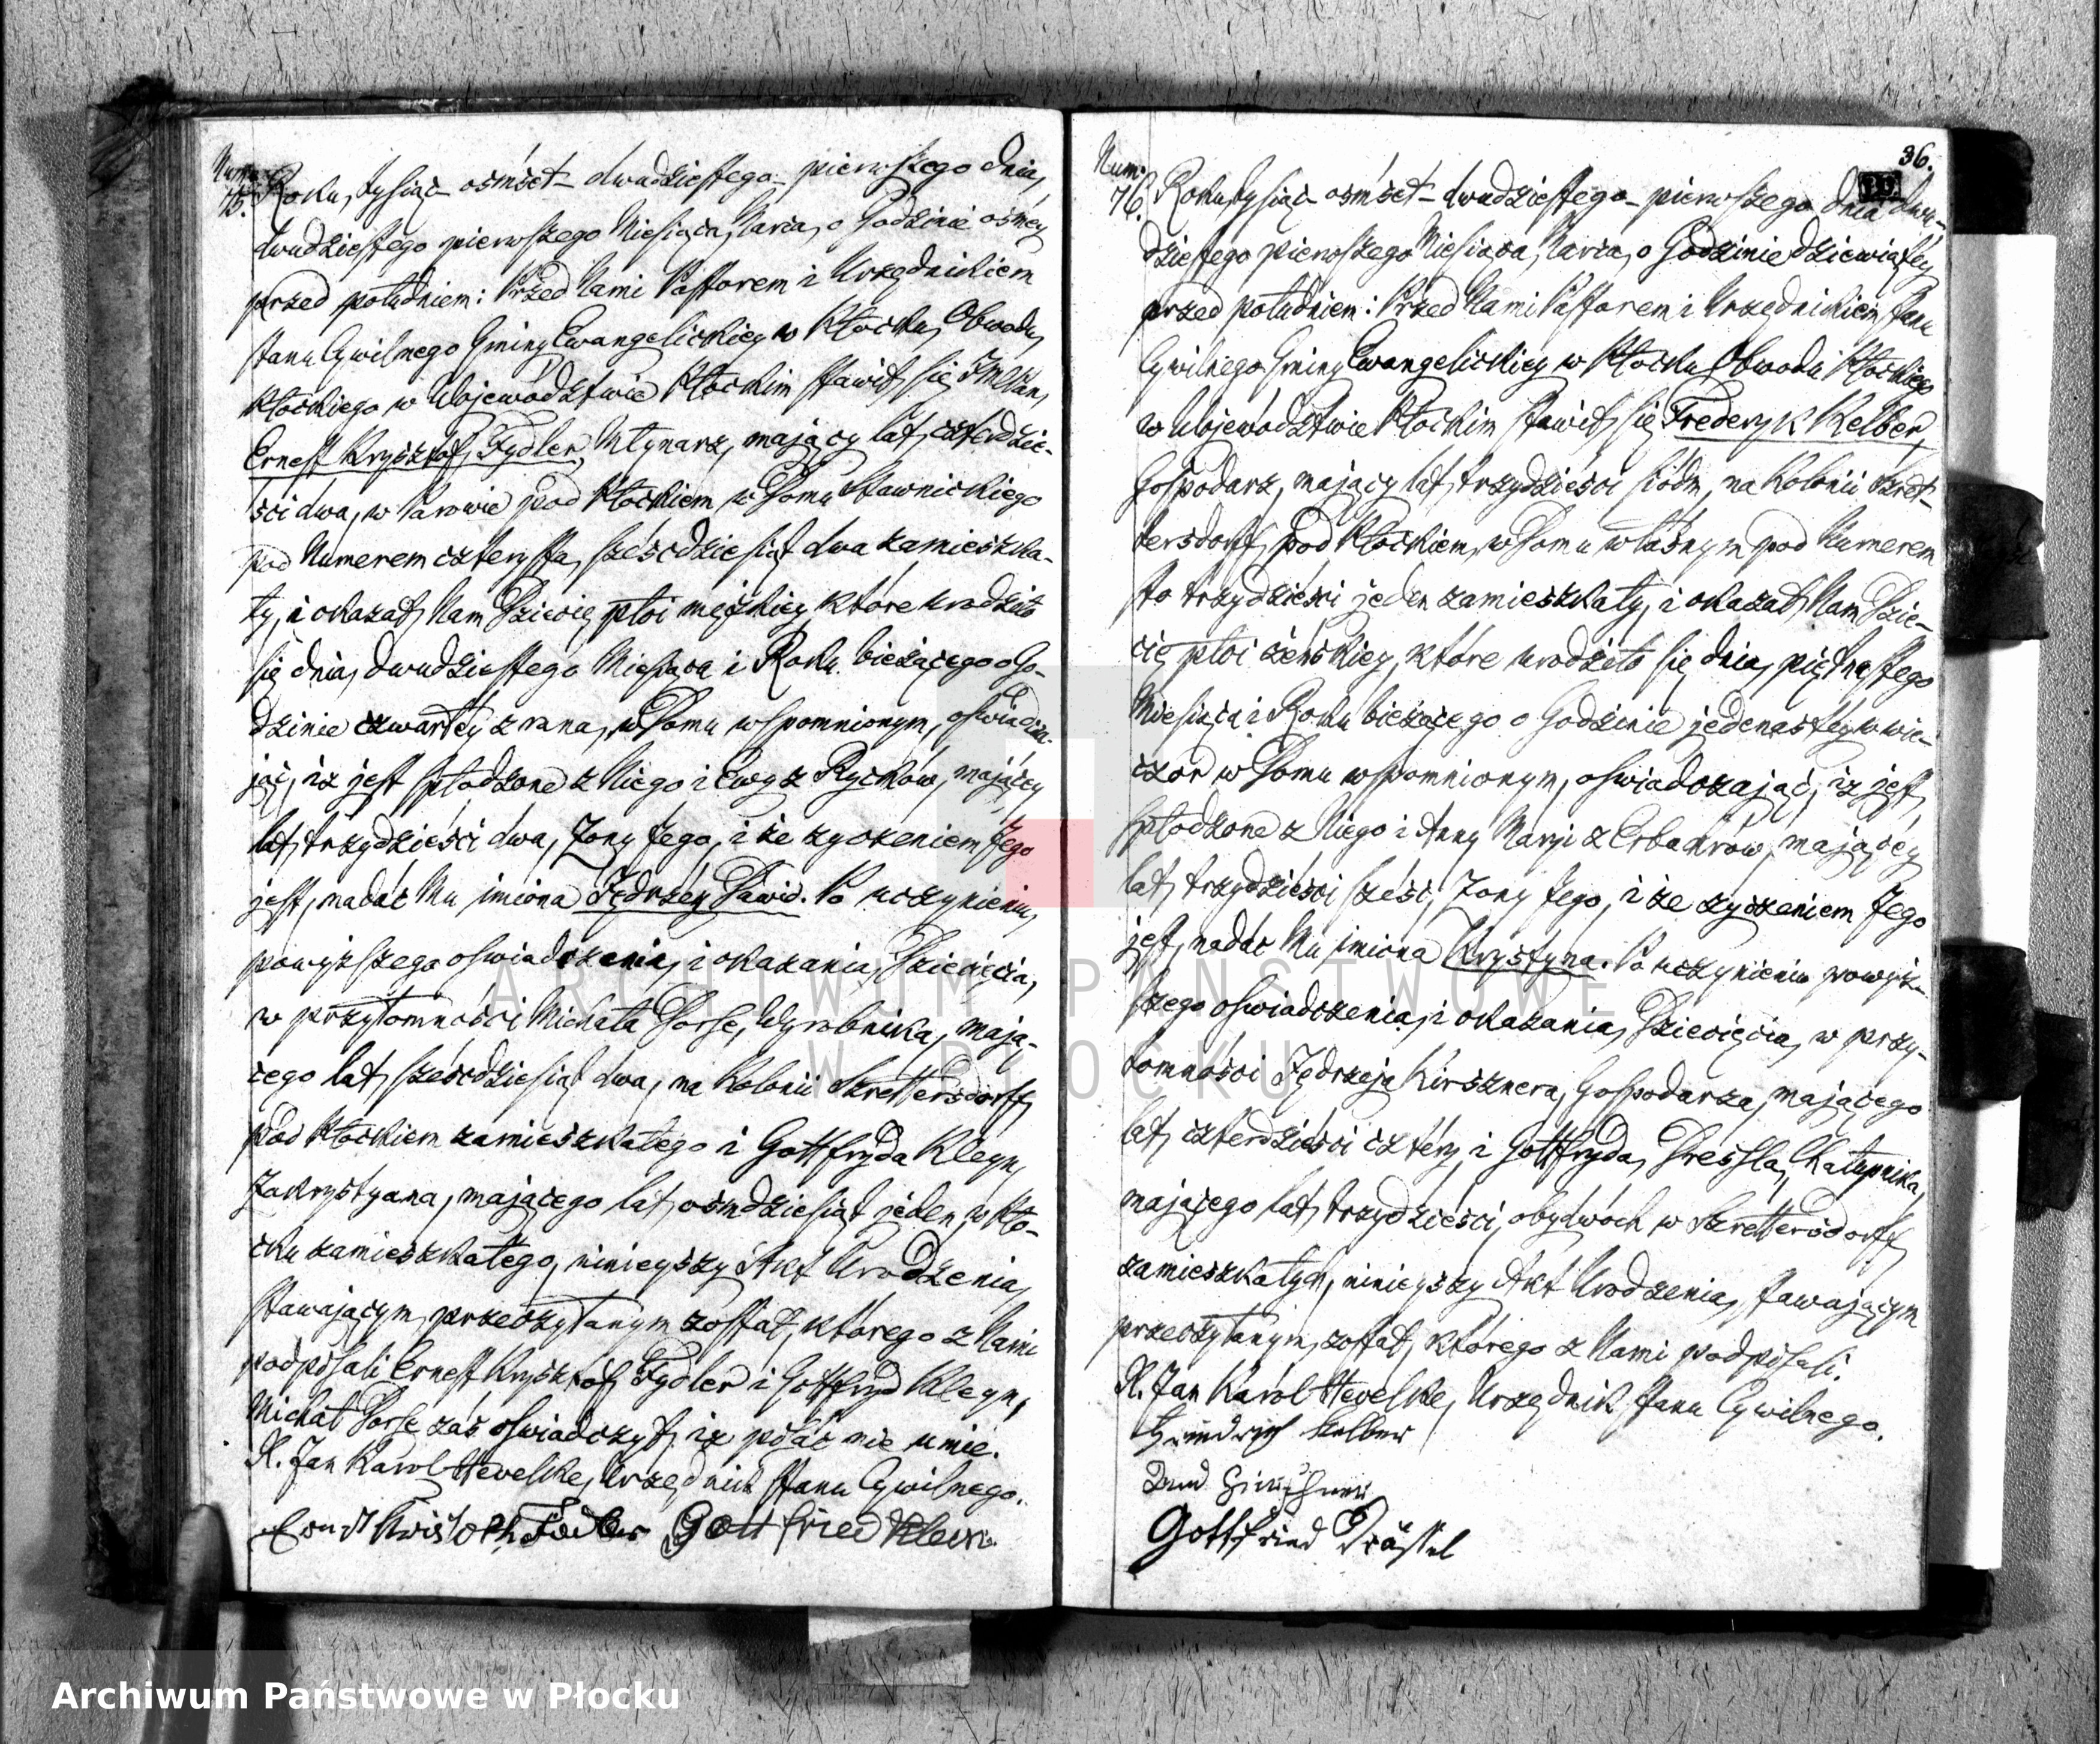 Num:
75. Roku tysiąc ośmset dwudziestego pierwszego dnia
dwudziestego pierwszego Miesiąca Marca, o Godzinie osmey
przed południem: Przed Nami Pastorem i Urzędnikiem
stanu Cywilnego Gminy Ewangelickiey w Płocku, Obwodu
Płockiego w Wojewodztwie Płockim stawił się
Ernest Krysztof Fydler, Młynarz, maiący lat czterdzie-
ści dwa, w Parowie pod Płockiem w Domu Sławnickiego
pod Numerem czterysta sześćdziesiąt dwa zamieszka-
ły, i okazał Nam Dziecię płci męzkiey, które urodziło
się dnia dwudziestego Miesiąca i Roku bieżącego o Go-
dzinie czwartey z rana, w Domu wspomnionym, oświadcza-
jąc, iz jest spłodzone z Niego i Ewy z Rychów, maiącey
lat trzydzieści dwa, Zony Jego, i że życzeniem Jego
jest, nadać Mu imiona Jędrzey Dawid. Po uczynieniu
powyższego oświadczenia i okazania Dziecięcia,
w przytomności Michała Dorse, Wyrobnika, mają-
cego lat sześćdziesiąt dwa, na Kolonii Szrettersdorff
pod Płockiem zamieszkałego i Gottfryda Kleyn,
Zakrystyana, mającego lat ośmdziesiąt jeden, w Pło-
cku zamieszkałego, ninieyszy Akt Urodzenia
stawającym przeczytanym został, którego z Nami
podpisali Ernest Krysztof Fydler i Gottfryd Kleyn,
Michał Dorse zaś oświadczył, iż pisać nie umie.
X. Jan Karol Hevelke, Urzędnik stanu Cywilnego.
Ernst Kristoph Fiedler Gottfried Klein.
36.
Num:
76. Roku tysiąc ośmset dwudziestego pierwszego dnia dwu-
dziestego pierwszego Miesiąca Marca, o Godzinie dziewiątey
przed południem: Przed Nami Pastorem i Urzędnikiem stanu
Cywilnego Gminy Ewangelickiey w Płocku Obwodu Płockiego
w Wojewodztwie Płockim stawił się Frederyk Kelber,
Gospodarz, mający lat trzydzieści siódm, na Kolonii Szret-
tersdorff pod Płockiem, w Domu własnym pod Numerem
sto trzydzieści jeden zamieszkały, i okazał Nam Dzie-
cię płci żeńskiey, które urodziło się dnia piętnastego
Miesiąca i Roku bieżącego o Godzinie jedenastey w wie-
czor w Domu wspomnionym, oświadczając, iz jest
spłodzone z Niego i Anny Maryi z Erbaków, mającey
lat trzydzieści sześć, Zony Jego, i że życzeniem Jego
jest, nadać Mu imiona Krystyna. Po uczynieniu powyż-
szego oświadczenia i okazania Dziecięcia, w przy-
tomności Jędrzeja Kirsznera, Gospodarza, mającego
lat czterdzieści cztery i Gottfryda Dressla, Chałupnika,
mającego lat trzydzieści, obydwóch w Szrettersdorff
zamieszkałych, ninieyszy Akt Urodzenia stawającym
przeczytanym został, którego z Nami podpisali.
X. Jan Karol Hevelke, Urzędnik stanu Cywilnego.
Friedrich Kelber
Gottfried Drässel
ARCHIWUM PAŃSTWOWE
W PŁOCKU
Archiwum Państwowe w Płocku